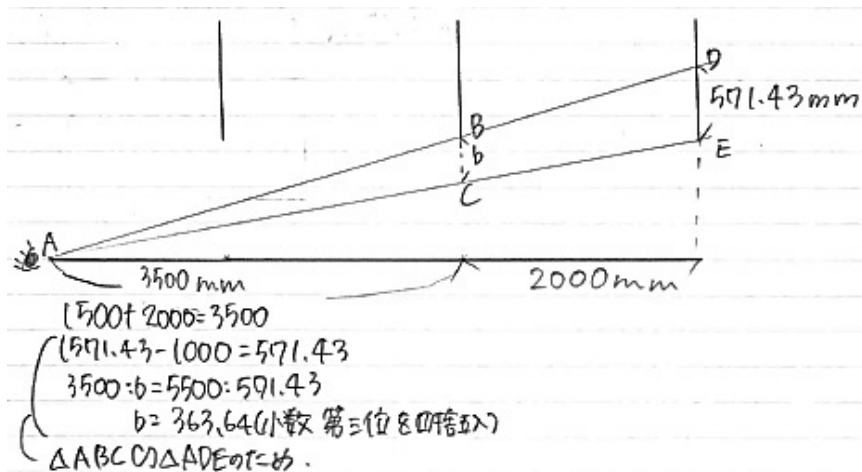 D
571.43mm
B
b
E
C
A
3500mm
2000mm
1500+2000=3500
1571.43-1000=571.43
3500:b=5500:571.43
b=363.64(小数第三位を四捨五入)
△ABC∽△ADEのため.